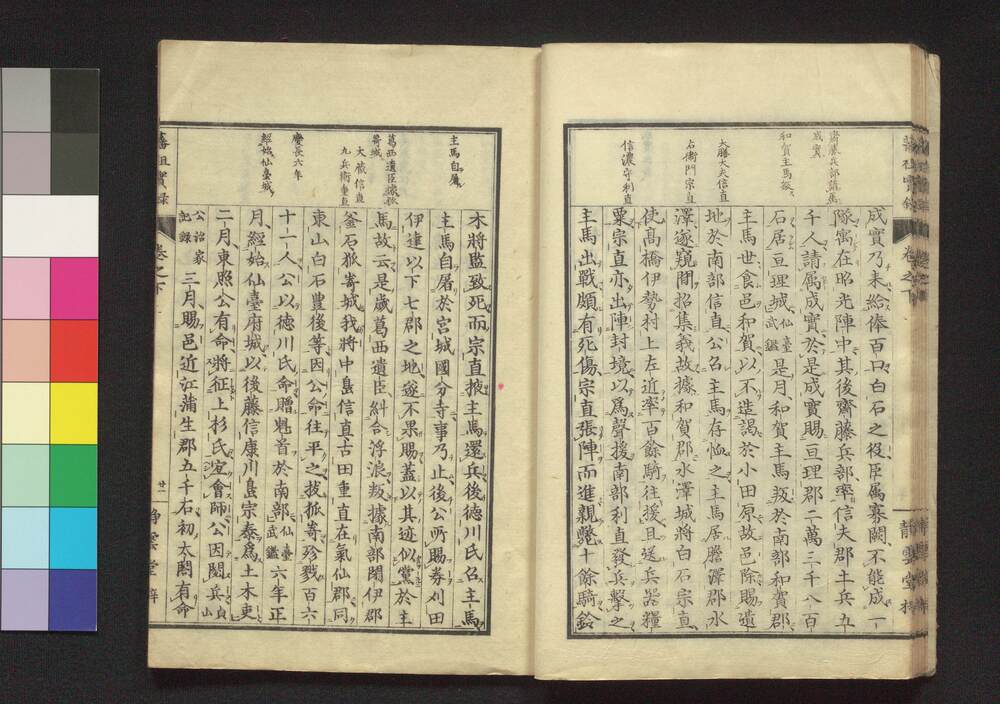 齋藤兵部請屬
成實
和賀主馬叛
大膳大夫信直
右衛門宗直
信濃守利直
成實乃来給俸百口白石之役臣属寡闕不能成一
隊寓在昭光陣中其後齋藤兵部率信夫郡土兵五
千人請属成實於是成實賜亘理郡二萬三千八百
石居亘理城仙臺武鑑是月和賀主馬叛於南部和賀郡
主馬世食邑和賀以不造謁於小田原故邑除賜遺
地於南部信直公召主馬存恤之主馬居膽澤郡水
澤遂窺間招集我故據和賀郡水澤城將白石宗直
使髙橋伊勢村上左近率百餘騎往援且送兵器糧
粟宗直亦出陣封境以爲聲援南部利直發兵撃之
主馬出戰頗有死傷宗直張陣而進親斃十餘騎鈴
藩祖實録
卷之下
靜雲堂梓
主馬自屠
葛西遺臣據狐
嵜城
大藏信直
九兵衛重直
慶長六年
經始仙臺城
木將監致死而宗直掖主馬還兵後德川氏召主馬
主馬自屠於宮城國分寺事乃止後公所賜券刈田
伊達以下七郡之地遂不果賜蓋以其迹似黨於主
馬故云是歲葛西遺臣糾合浮浪叛據南部閉伊郡
釜石狐嵜城我將中島信直古田重直在氣仙郡同
東山白石豊後等因公命往平之拔狐嵜殄戮百六
十十人公以德川氏命贈魁首於南部仙臺武鑑六年正
月經始仙臺府城以後藤信康川島宗泰爲土木吏
二月東照公有命將征上杉氏定會師公因閲兵貞山
公治家記録三月賜邑近江蒲生郡五千石初太閤有命
藩祖實録
卷之下
廿一
靜雲堂梓